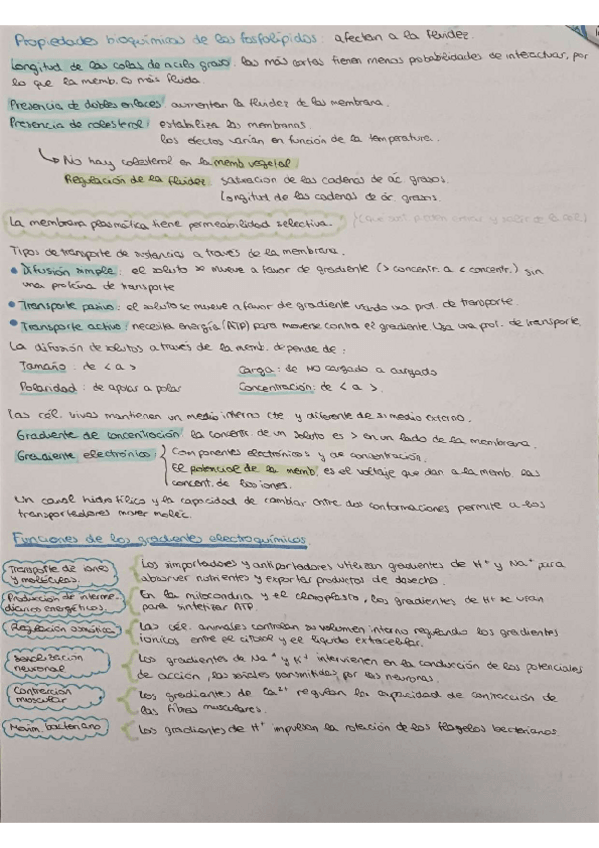 Propiedades bioquímicas de los fosfolípidos: afectan a la fluidez.
Longitud de las colas de acilo graso: las más cortas tienen menos probabilidades de interactuar, por
lo que la memb. es más fluida.
Presencia de dobles enlaces: aumentan la fluidez de las membrana.
Presencia de colesterol: estabiliza las membranas.
los efectos varían en función de la temperatura.
↳ No hay colesterol en la memb vegetal
Regulación de la fluidez: saturacion de las cadenas de ác grasos.
longitud de las cadenas de ác grasos.
La membrana plasmática tiene permeabilidad selectiva.
Tipos de transporte de sustancias a traves de la membrana.
• Difusión simple: el soluto se mueve a favor de gradiente (> concentr. a < concentr.) sin
una proteína de transporte
• Transporte pasivo: el soluto se mueve a favor de gradiente usando una prot. de transporte.
• Transporte activo: necesita energía (ATP) para moverse contra el gradiente. Usa una prot. de transporte.
La difusión de solutos a través de la memb. depende de:
Tamaño: de < a > Carga: de NO cargado a cargado
Polaridad: de apolar a polar Concentración: de < a >.
Las cél. vivas mantienen un medio interno cte y diferente de su medio externo.
Gradiente de concentración: la concentr. de un soluto es > en un lado de la membrana.
Gradiente electrónico { Componentes electrónicos y de concentración.
El potencial de la memb. es el voltaje que dan a la memb. las
concent. de los iones.
Un canal hidrofílico y la capacidad de cambiar entre dos conformaciones permite a los
transportadores mover moléc.
Funciones de los gradientes electroquímicos.
Transporte de iones y moléculas. { Los simportadores y antiportadores utilizan gradientes de H⁺ y Na⁺ para
absorver nutrientes y exportar productos de desecho.
Producción de intermediarios energéticos. { En la mitocondria y el cloroplasto, los gradientes de H⁺ se usan
para sintetizar ATP.
Regulación osmótica { Las cél. animales controlan su volumen interno regulando los gradientes
iónicos entre el citosol y el líquido extracelular.
Señalización neuronal { Los gradientes de Na⁺ y K⁺ intervienen en la conducción de los potenciales
de acción, las señales transmitidas por las neuronas.
Contracción muscular { Los gradientes de Ca²⁺ regulan la capacidad de contracción de
las fibras musculares.
Movim. bacteriano { Los gradientes de H⁺ impulsan la rotación de los flagelos bacterianos.